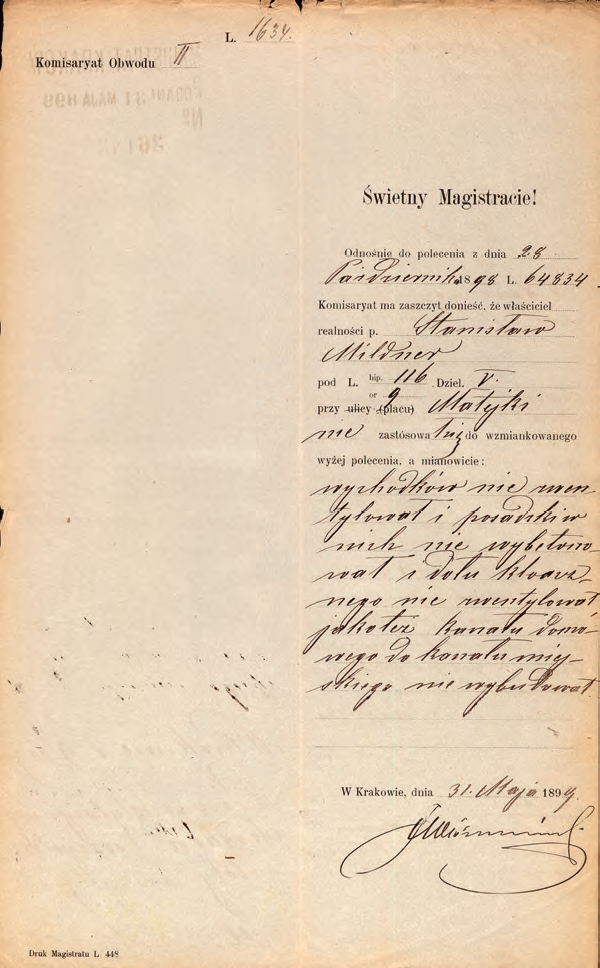 L. 1634.
Komisaryat Obwodu II
Świetny Magistracie!
Odnośnie do polecenia z dnia 28
Października 1898 L. 64834
Komisaryat ma zaszczyt donieść, że właściciel
realności p. Stanisław
Mildner
pod L. hip. 116 Dziel. V.
or 9
przy ulicy (placu) Matejki
nie zastósował się do wzmiankowanego
wyżej polecenia, a mianowicie:
wychodków nie wen
tylował i posadzki w
nich nie wybetono-
wał i dołu kloacz-
nego nie wentylował
jakoteż kanału domo-
wego do kanału miej-
skiego nie wybudował.
W Krakowie, dnia 31. Maja 1899.
Druk Magistratu L. 448